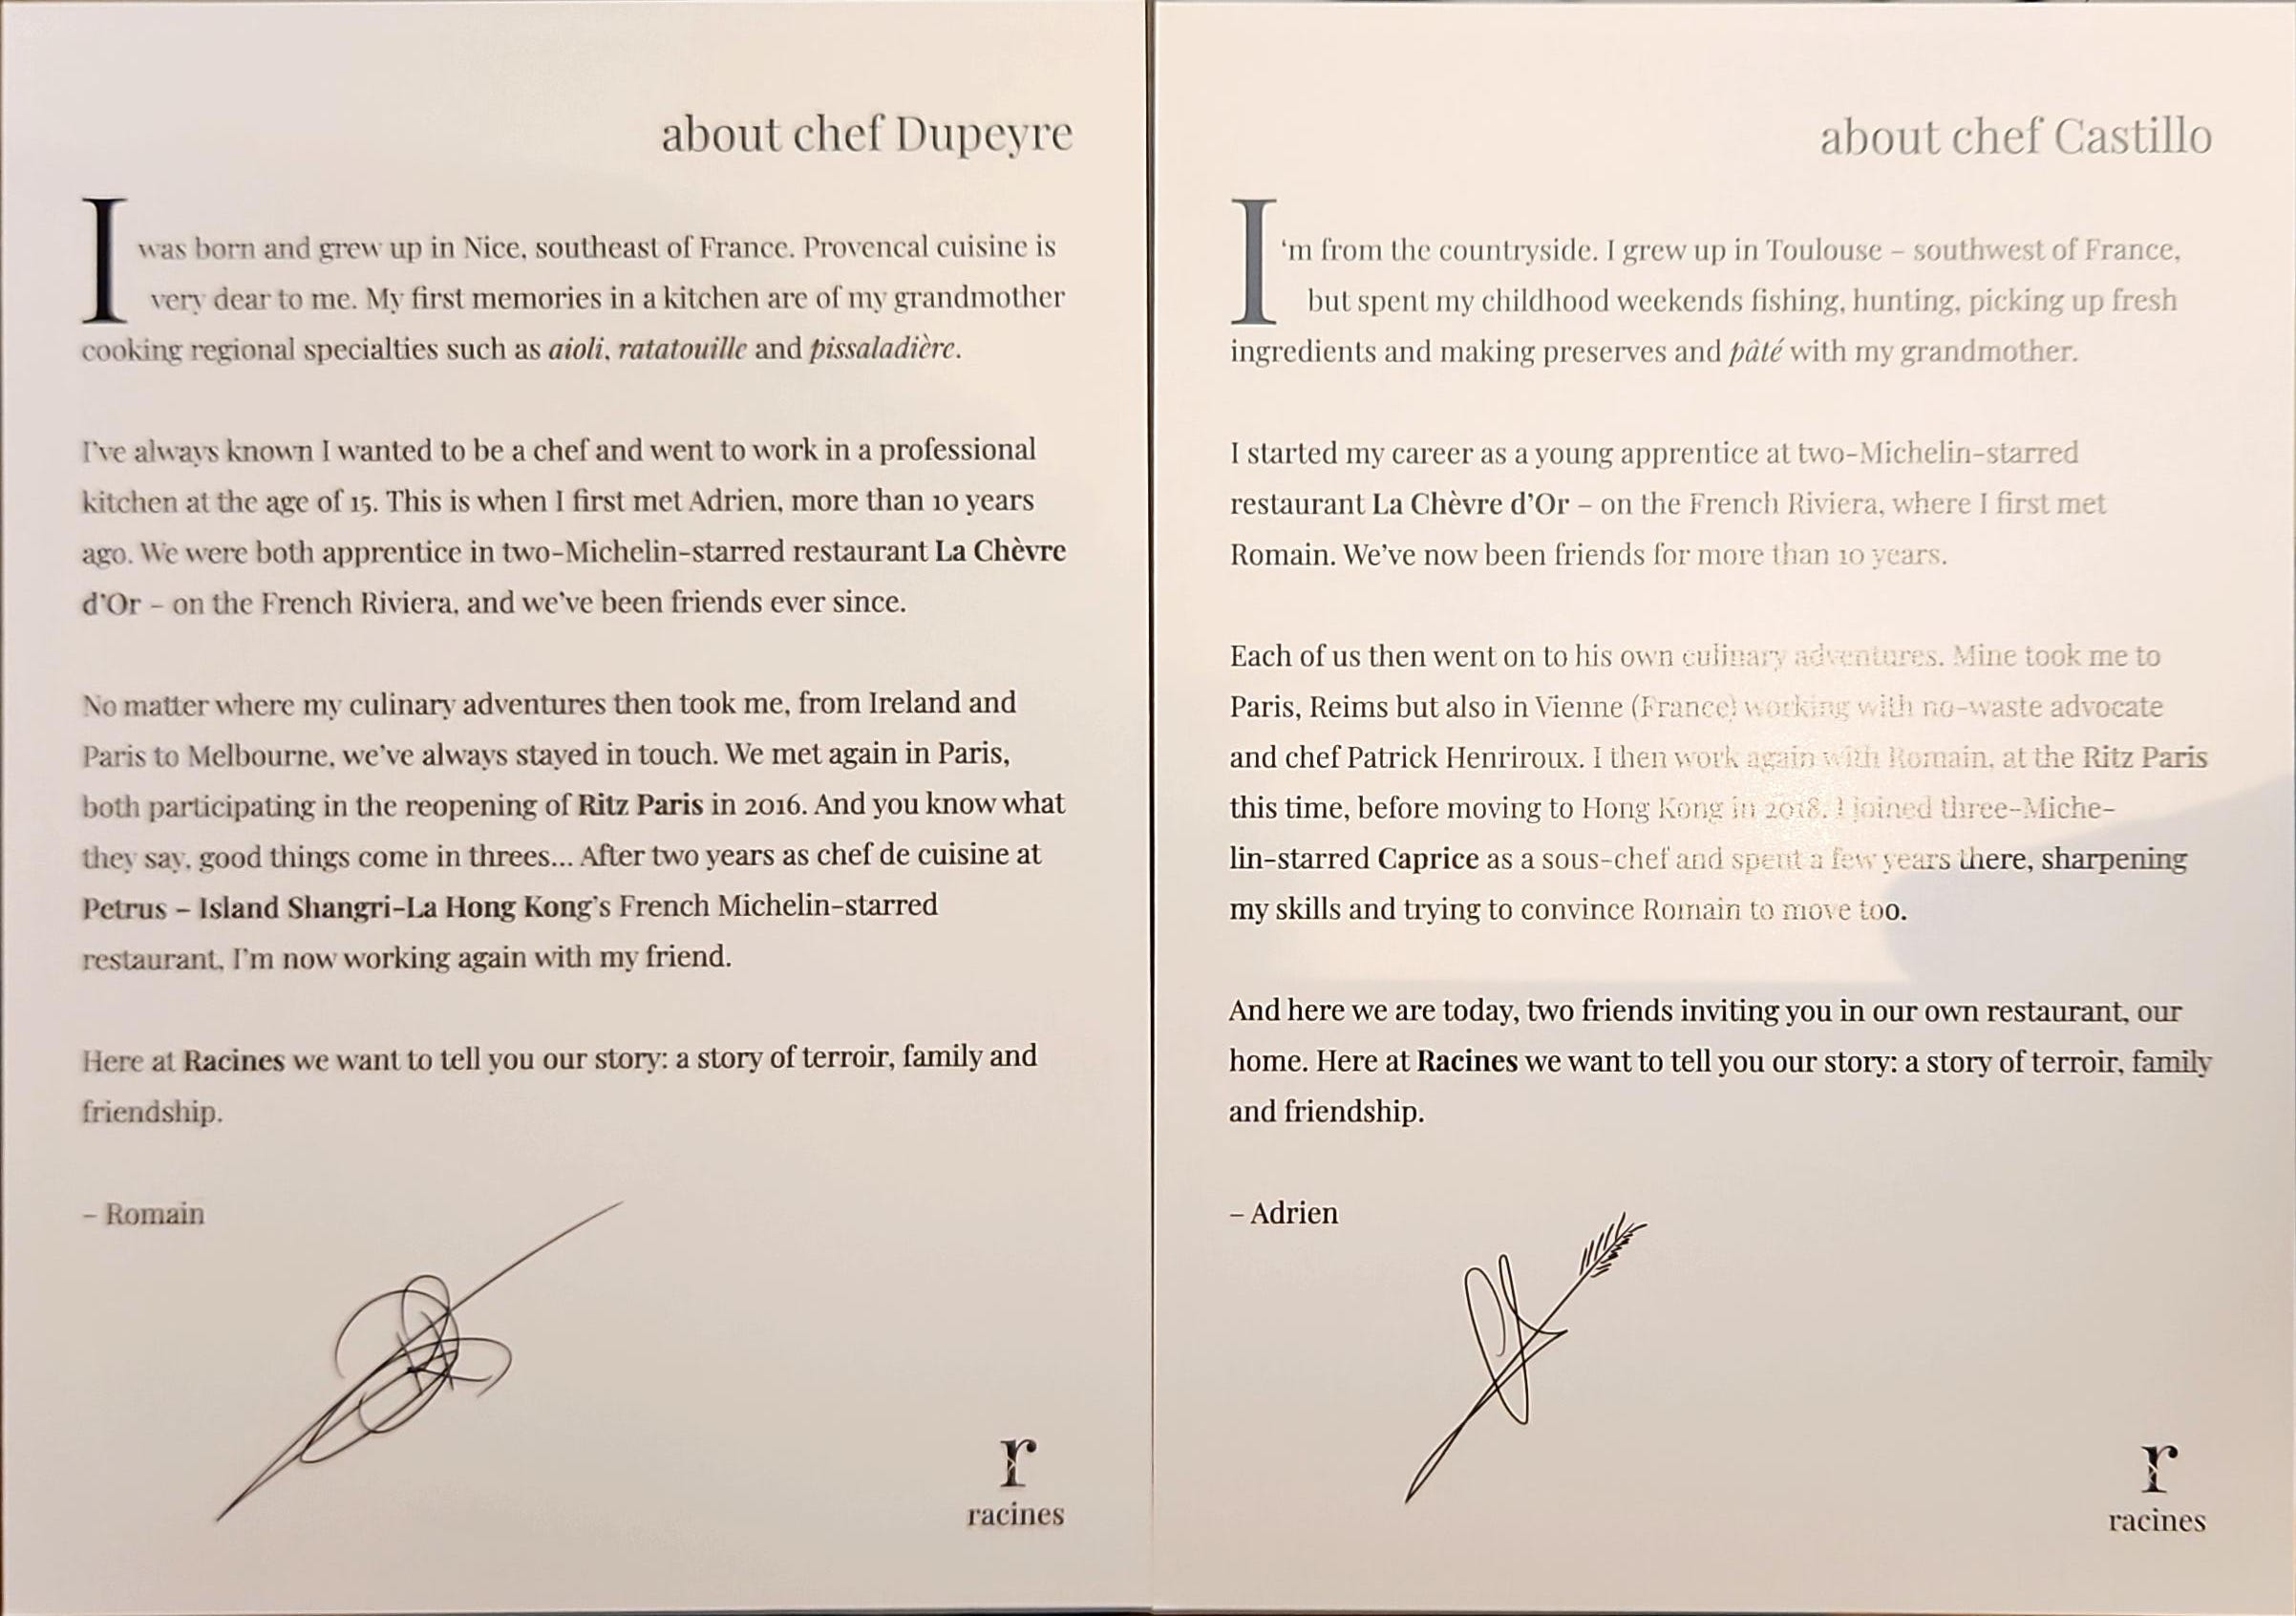 about chef Dupeyre
I was born and grew up in Nice, southeast of France. Provencal cuisine is
very dear to me. My first memories in a kitchen are of my grandmother
cooking regional specialties such as aioli, ratatouille and pissaladière.
I've always known I wanted to be a chef and went to work in a professional
kitchen at the age of 15. This is when I first met Adrien, more than 10 years
ago. We were both apprentice in two-Michelin-starred restaurant La Chèvre
d'Or – on the French Riviera, and we've been friends ever since.
No matter where my culinary adventures then took me, from Ireland and
Paris to Melbourne, we've always stayed in touch. We met again in Paris,
both participating in the reopening of Ritz Paris in 2016. And you know what
they say, good things come in threes... After two years as chef de cuisine at
Petrus – Island Shangri-La Hong Kong's French Michelin-starred
restaurant, I'm now working again with my friend.
Here at Racines we want to tell you our story: a story of terroir, family and
friendship.
– Romain
r
racines
about chef Castillo
I 'm from the countryside. I grew up in Toulouse – southwest of France,
but spent my childhood weekends fishing, hunting, picking up fresh
ingredients and making preserves and pâté with my grandmother.
I started my career as a young apprentice at two-Michelin-starred
restaurant La Chèvre d'Or – on the French Riviera, where I first met
Romain. We've now been friends for more than 10 years.
Each of us then went on to his own culinary adventures. Mine took me to
Paris, Reims but also in Vienne (France) working with no-waste advocate
and chef Patrick Henriroux. I then work again with Romain, at the Ritz Paris
this time, before moving to Hong Kong in 2018. I joined three-Miche-
lin-starred Caprice as a sous-chef and spent a few years there, sharpening
my skills and trying to convince Romain to move too.
And here we are today, two friends inviting you in our own restaurant, our
home. Here at Racines we want to tell you our story: a story of terroir, family
and friendship.
– Adrien
r
racines